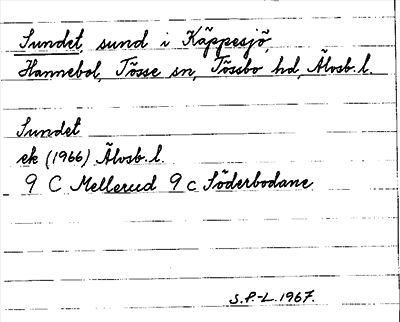 Sundet, sund i Käppesjö,
Hannebol, Tösse sn, Tössbo hd, Älvsb. l.
Sundet
ek (1966) Älvsb. l.
9 C Mellerud 9 c Söderbodane
S.P.-L. 1967.